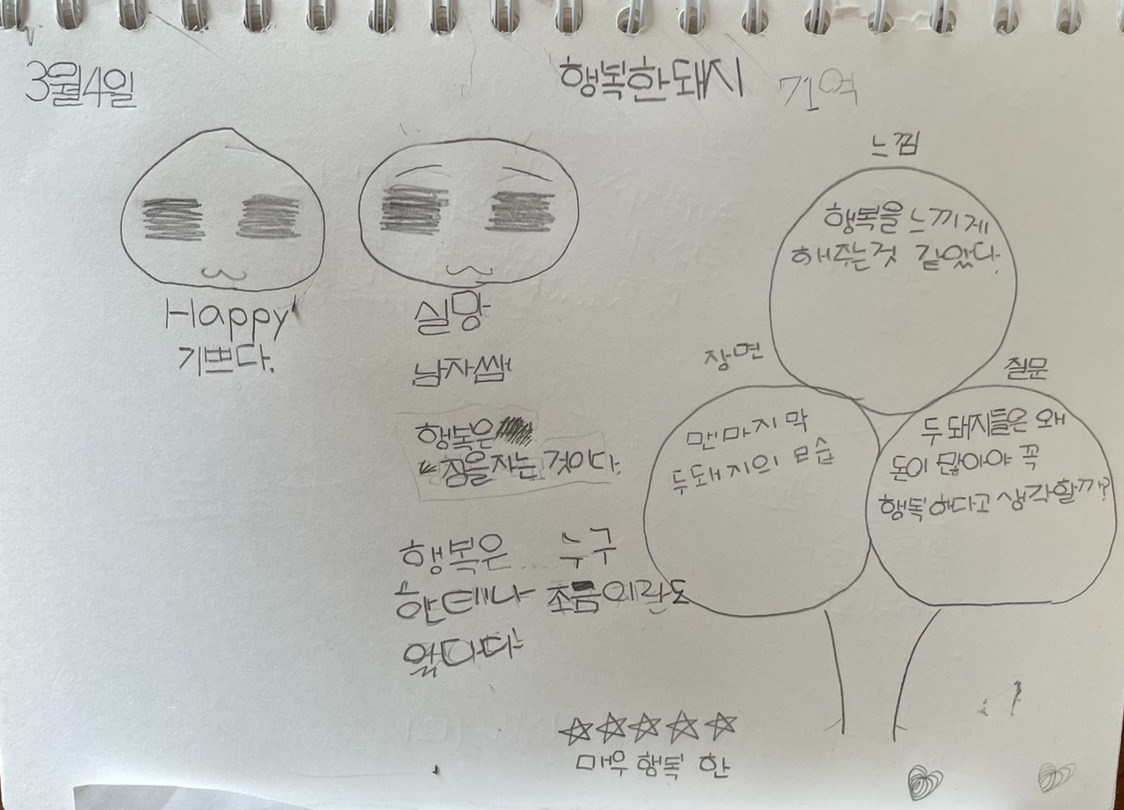 3월4일
행복한돼지 기억
Happy
기쁘다.
실망
남자쌤
행복은
잠을자는 것이다.
행복은... 누구
한테나 조금이란도
있다다.
느낌
행복을 느끼게
해주는것 같았다.
장면
맨마지막
두돼지의 모습
질문
두 돼지들은 왜
돈이 많아야 꼭
행복하다고 생각할까?
☆☆☆☆☆
매우 행복 한